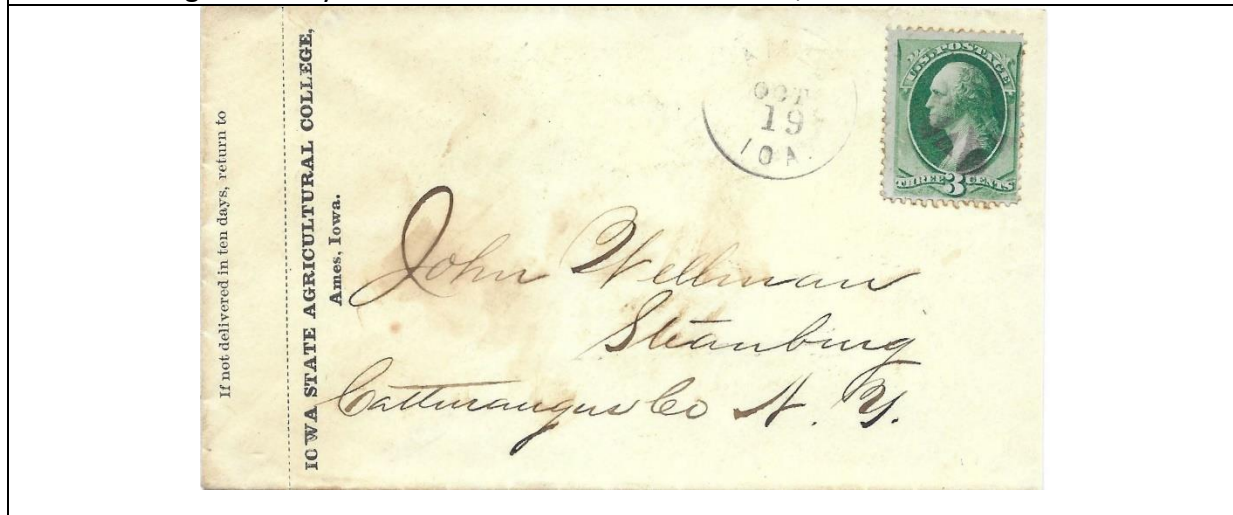 If not delivered in ten days, return to
IOWA STATE AGRICULTURAL COLLEGE,
Ames, Iowa.
OCT
19
IOA
U.S. POSTAGE
THREE 3 CENTS
John Wellman
Steanburg
Cattaraugus Co N. Y.